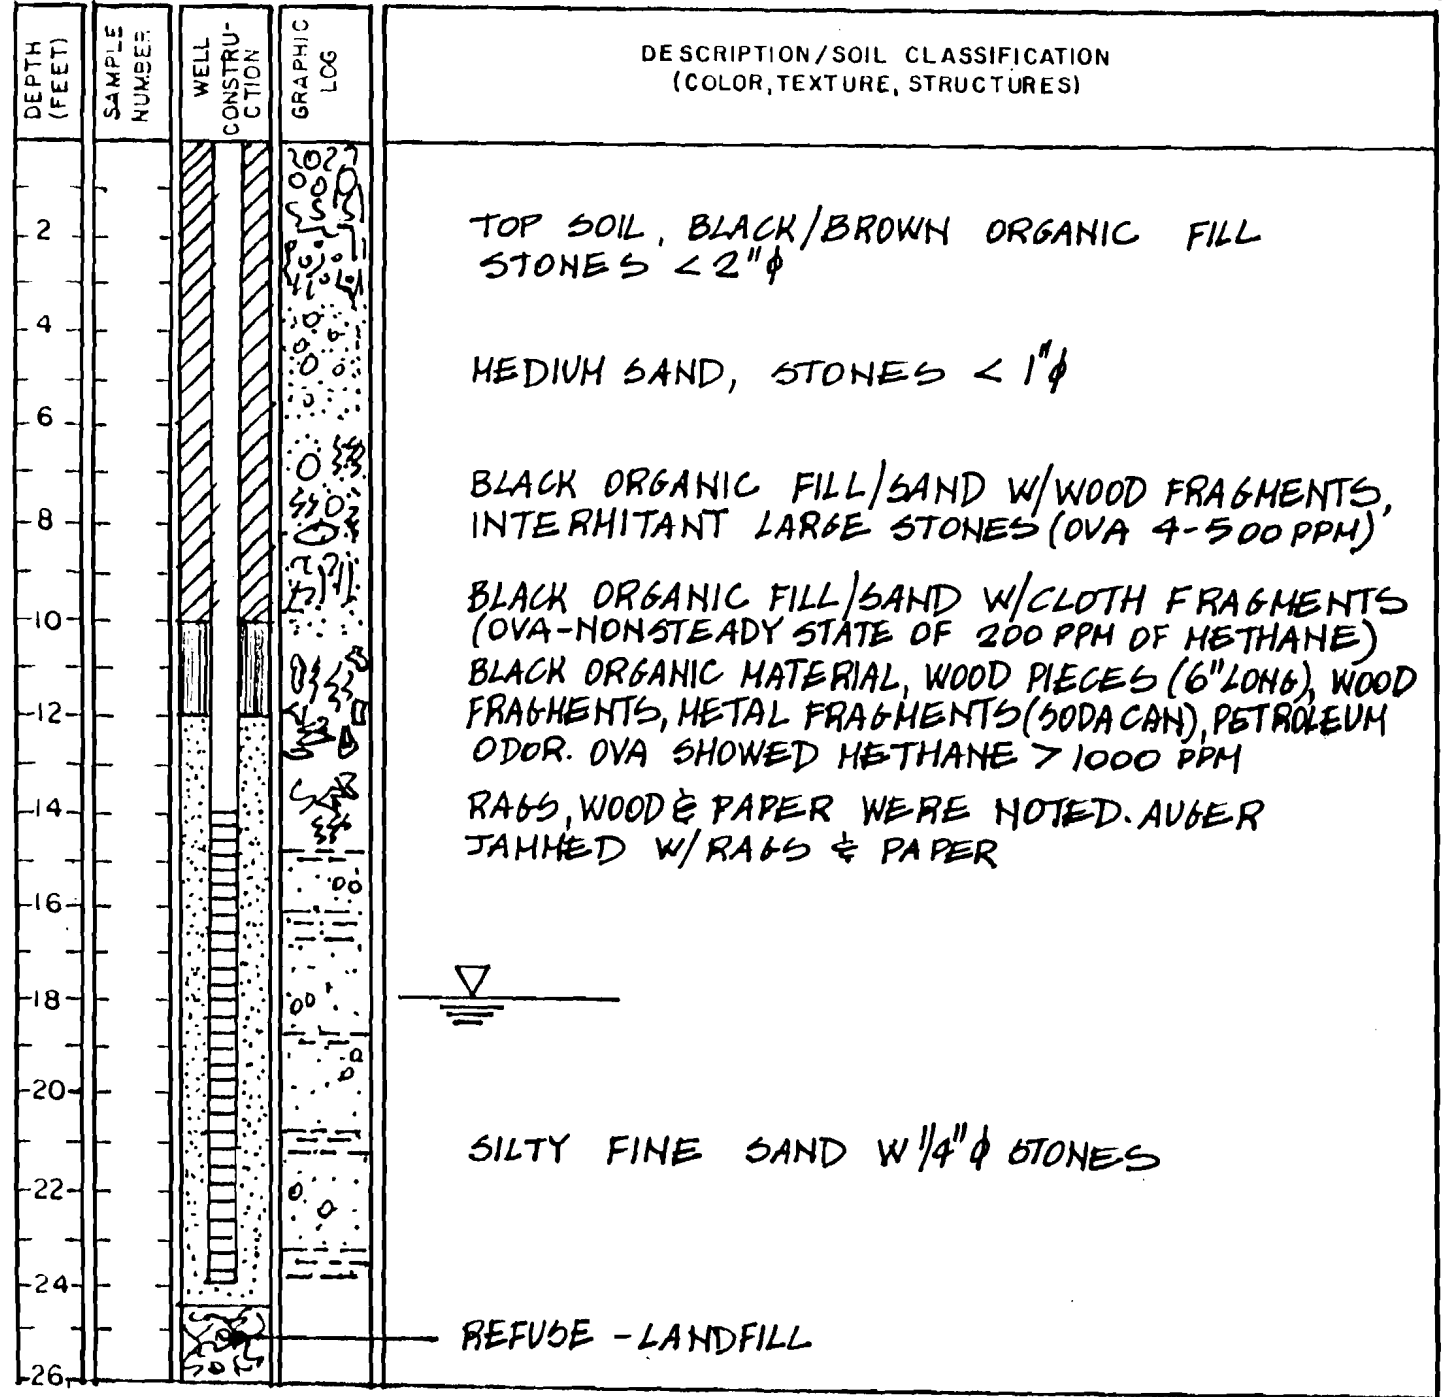 DEPTH
(FEET)
SAMPLE
NUMBER
WELL
CONSTRU-
CTION
GRAPHIC
LOG
DESCRIPTION/SOIL CLASSIFICATION
(COLOR, TEXTURE, STRUCTURES)
2
TOP SOIL, BLACK/BROWN ORGANIC FILL
STONES < 2"ϕ
4
MEDIUM SAND, STONES < 1"ϕ
6
BLACK ORGANIC FILL/SAND W/WOOD FRAGMENTS,
8
INTERMITANT LARGE STONES (OVA 4-500 PPM)
BLACK ORGANIC FILL/SAND W/CLOTH FRAGMENTS
10
(OVA-NONSTEADY STATE OF 200 PPM OF METHANE)
BLACK ORGANIC MATERIAL, WOOD PIECES (6" LONG), WOOD
12
FRAGMENTS, METAL FRAGMENTS (SODA CAN), PETROLEUM
ODOR. OVA SHOWED METHANE > 1000 PPM
14
RAGS, WOOD & PAPER WERE NOTED. AUGER
JAMMED W/ RAGS & PAPER
16
18
20
SILTY FINE SAND W 1/4"ϕ STONES
22
24
REFUSE - LANDFILL
26